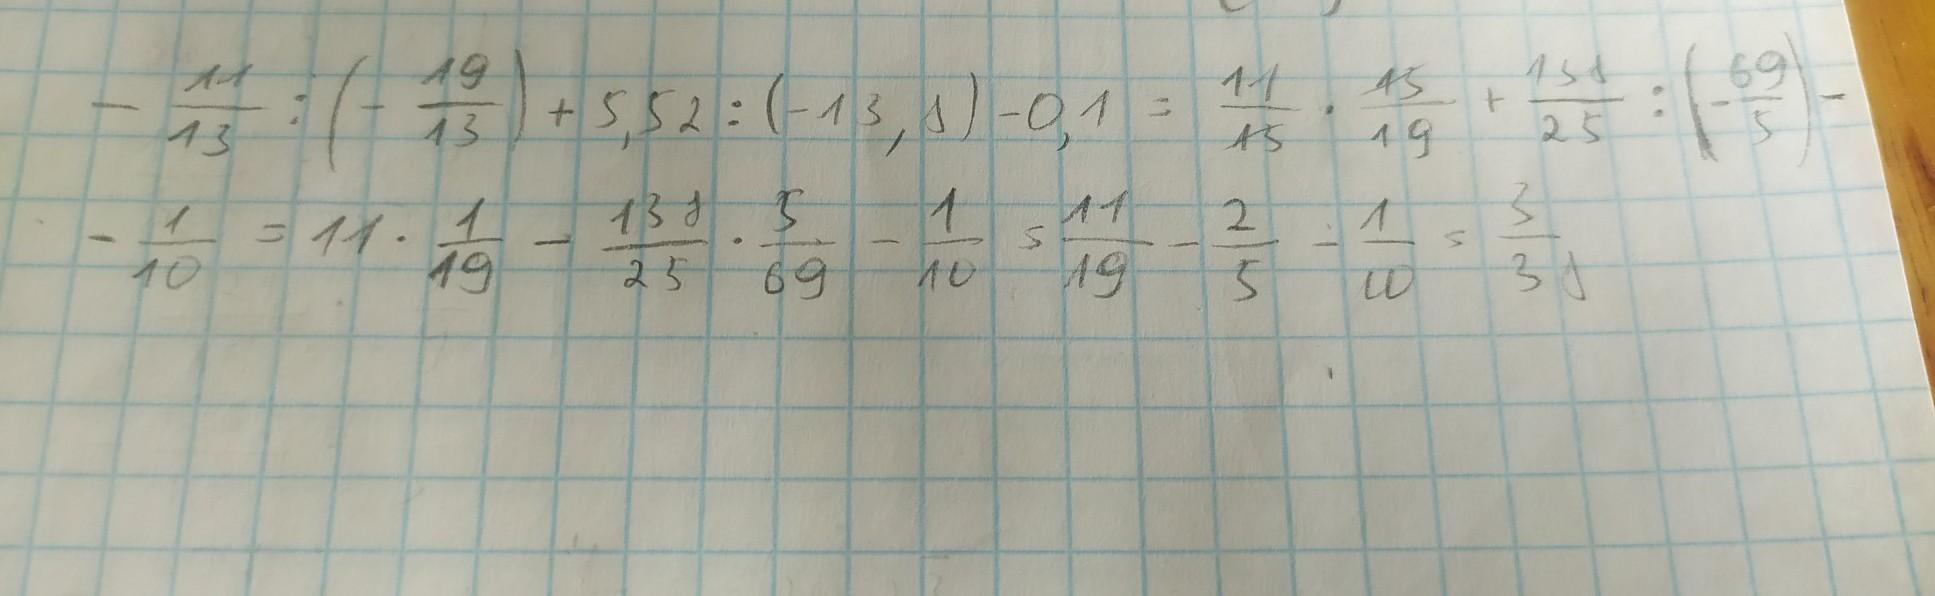 - 11/13 : (- 19/13) + 5,52 : (-13,8) - 0,1 = 11/15 · 15/19 + 138/25 : (- 69/5) -
- 1/10 = 11 · 1/19 - 138/25 · 5/69 - 1/10 = 11/19 - 2/5 - 1/10 = 3/38